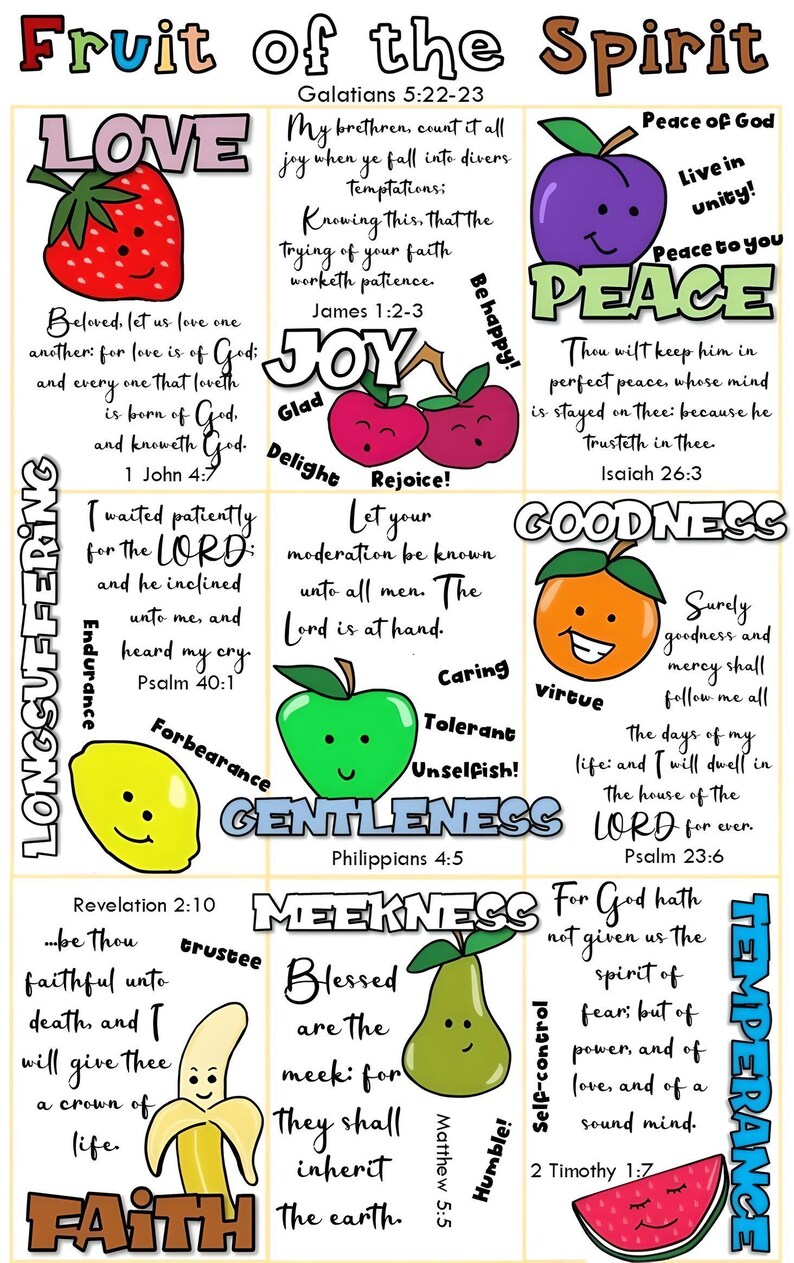 Fruit of the Spirit
Galatians 5:22-23
LOVE
Beloved, let us love one
another: for love is of God;
and every one that loveth
is born of God,
and knoweth God.
1 John 4:7
My brethren, count it all
joy when ye fall into divers
temptations;
Knowing this, that the
trying of your faith
worketh patience.
James 1:2-3
JOY
Be happy!
Glad
Delight
Rejoice!
Peace of God
Live in
unity!
Peace to you
PEACE
Thou wilt keep him in
perfect peace, whose mind
is stayed on thee: because he
trusteth in thee.
Isaiah 26:3
LONGSUFFERING
I waited patiently
for the LORD;
and he inclined
unto me, and
heard my cry.
Psalm 40:1
Endurance
Forbearance
Let your
moderation be known
unto all men. The
Lord is at hand.
Caring
Tolerant
Unselfish!
GENTLENESS
Philippians 4:5
GOODNESS
virtue
Surely
goodness and
mercy shall
follow me all
the days of my
life: and I will dwell in
the house of the
LORD for ever.
Psalm 23:6
Revelation 2:10
...be thou
faithful unto
death, and I
will give thee
a crown of
life.
trustee
FAiTH
MEEKNESS
Blessed
are the
meek: for
they shall
inherit
the earth.
Matthew 5:5
Humble!
For God hath
not given us the
spirit of
fear; but of
power, and of
love, and of a
sound mind.
2 Timothy 1:7
Self-control
TEMPERANCE